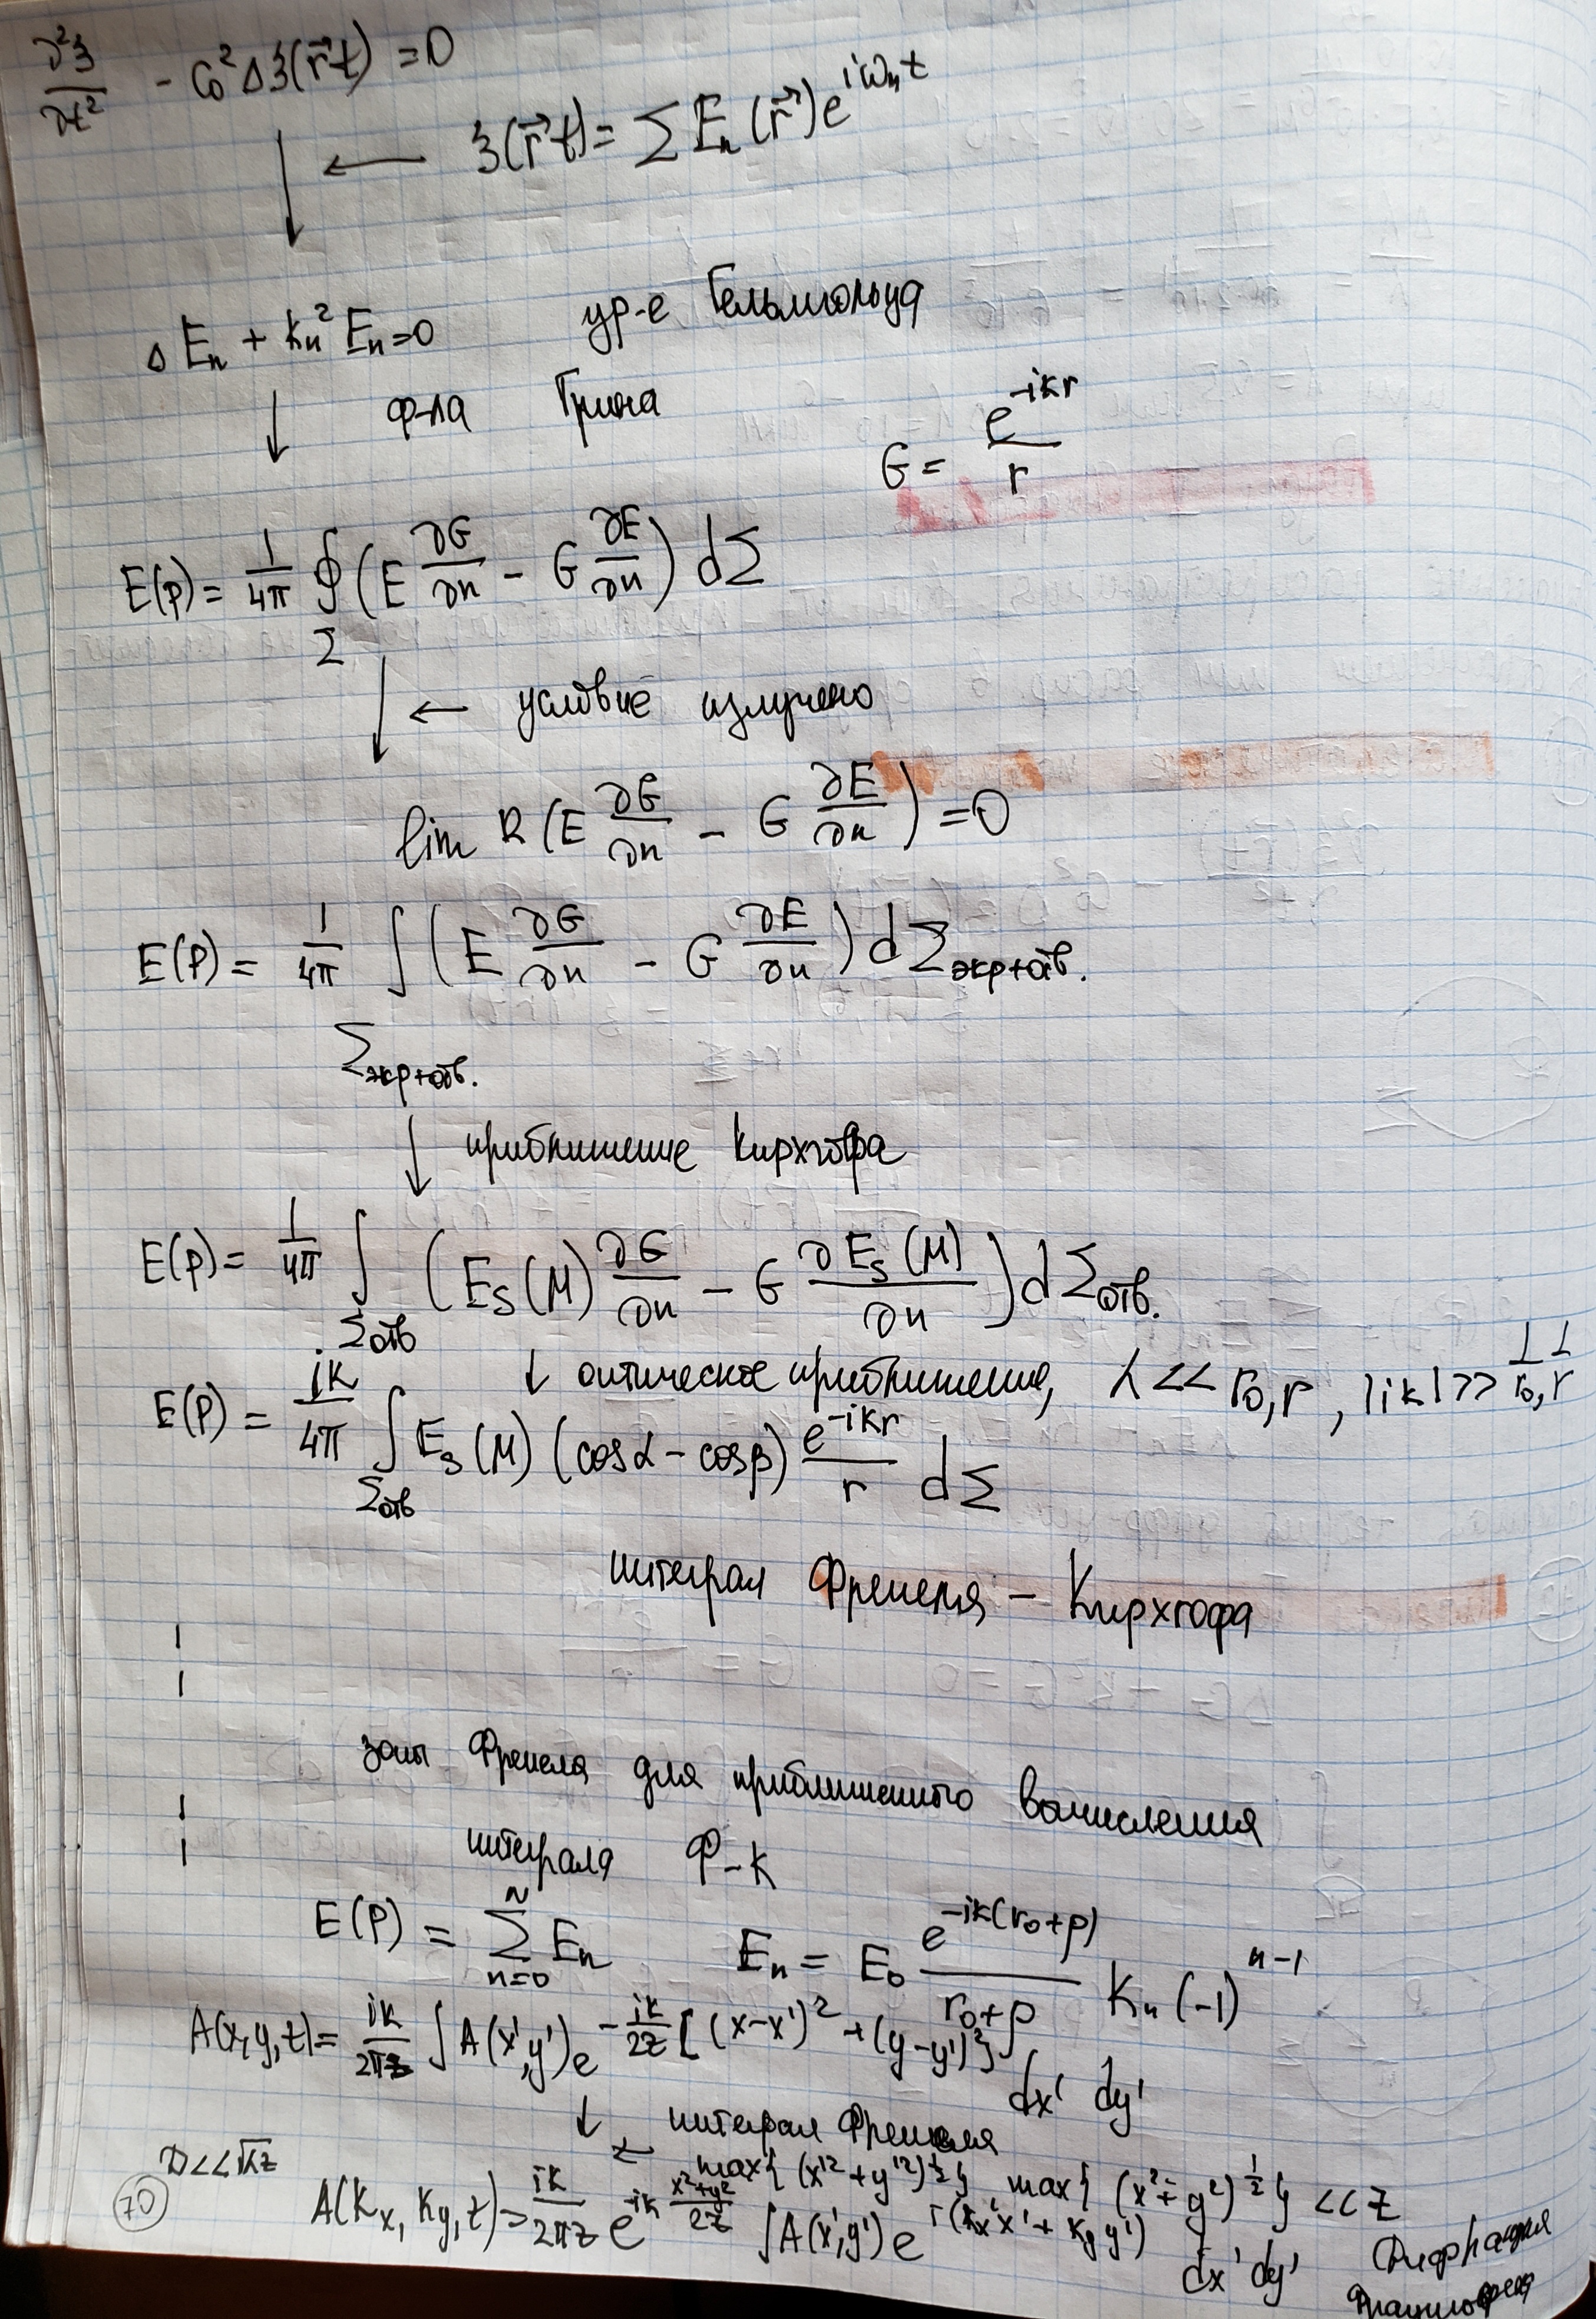 ∂²ξ/∂t² - C₀²Δξ(r⃗t) = 0
ξ(r⃗t) = ΣEₙ(r⃗)e^{iωₙt}
ΔEₙ + kₙ²Eₙ=0 ур-е Гельмгольца
ф-ла Грина
G = e^{-ikr}/r
E(p) = 1/4π ∮_Σ (E ∂G/∂n - G ∂E/∂n) dΣ
← условие излучено
lim R (E ∂G/∂n - G ∂E/∂n) = 0
E(P) = 1/4π ∫_{Σэкр+отв.} (E ∂G/∂n - G ∂E/∂n) dΣэкр+отв.
↓ приближение Кирхгофа
E(p) = 1/4π ∫_{Σотв} (E_S(M) ∂G/∂n - G ∂E_S(M)/∂n) dΣотв.
↓ оптическое приближение, λ << r₀,r , |ik| >> 1/r₀, 1/r
E(P) = ik/4π ∫_{Σотв} E_s(M) (cosα - cosβ) e^{-ikr}/r dΣ
интеграл Френеля - Кирхгофа
зоны Френеля для приближенного вычисления
интеграла Ф-К
E(P) = Σ_{n=0}^{N} Eₙ Eₙ = E₀ e^{-ik(r₀+ρ)}/(r₀+ρ) Kₙ (-1)^{n-1}
A(x,y,z) = ik/2πz ∫A(x',y')e^{-ik/2z [(x-x')²+(y-y')²]} dx' dy'
↓ интеграл Френеля
D<<√λz ← max{(x'²+y'²)^{1/2}} max{(x²+y²)^{1/2}} << z
70 A(Kx, Ky, z) = ik/2πz e^{-ik (x²+y²)/2z} ∫A(x',y')e^{i(Kx x' + Ky y')} dx'dy'
Дифракция
Фраунгофера